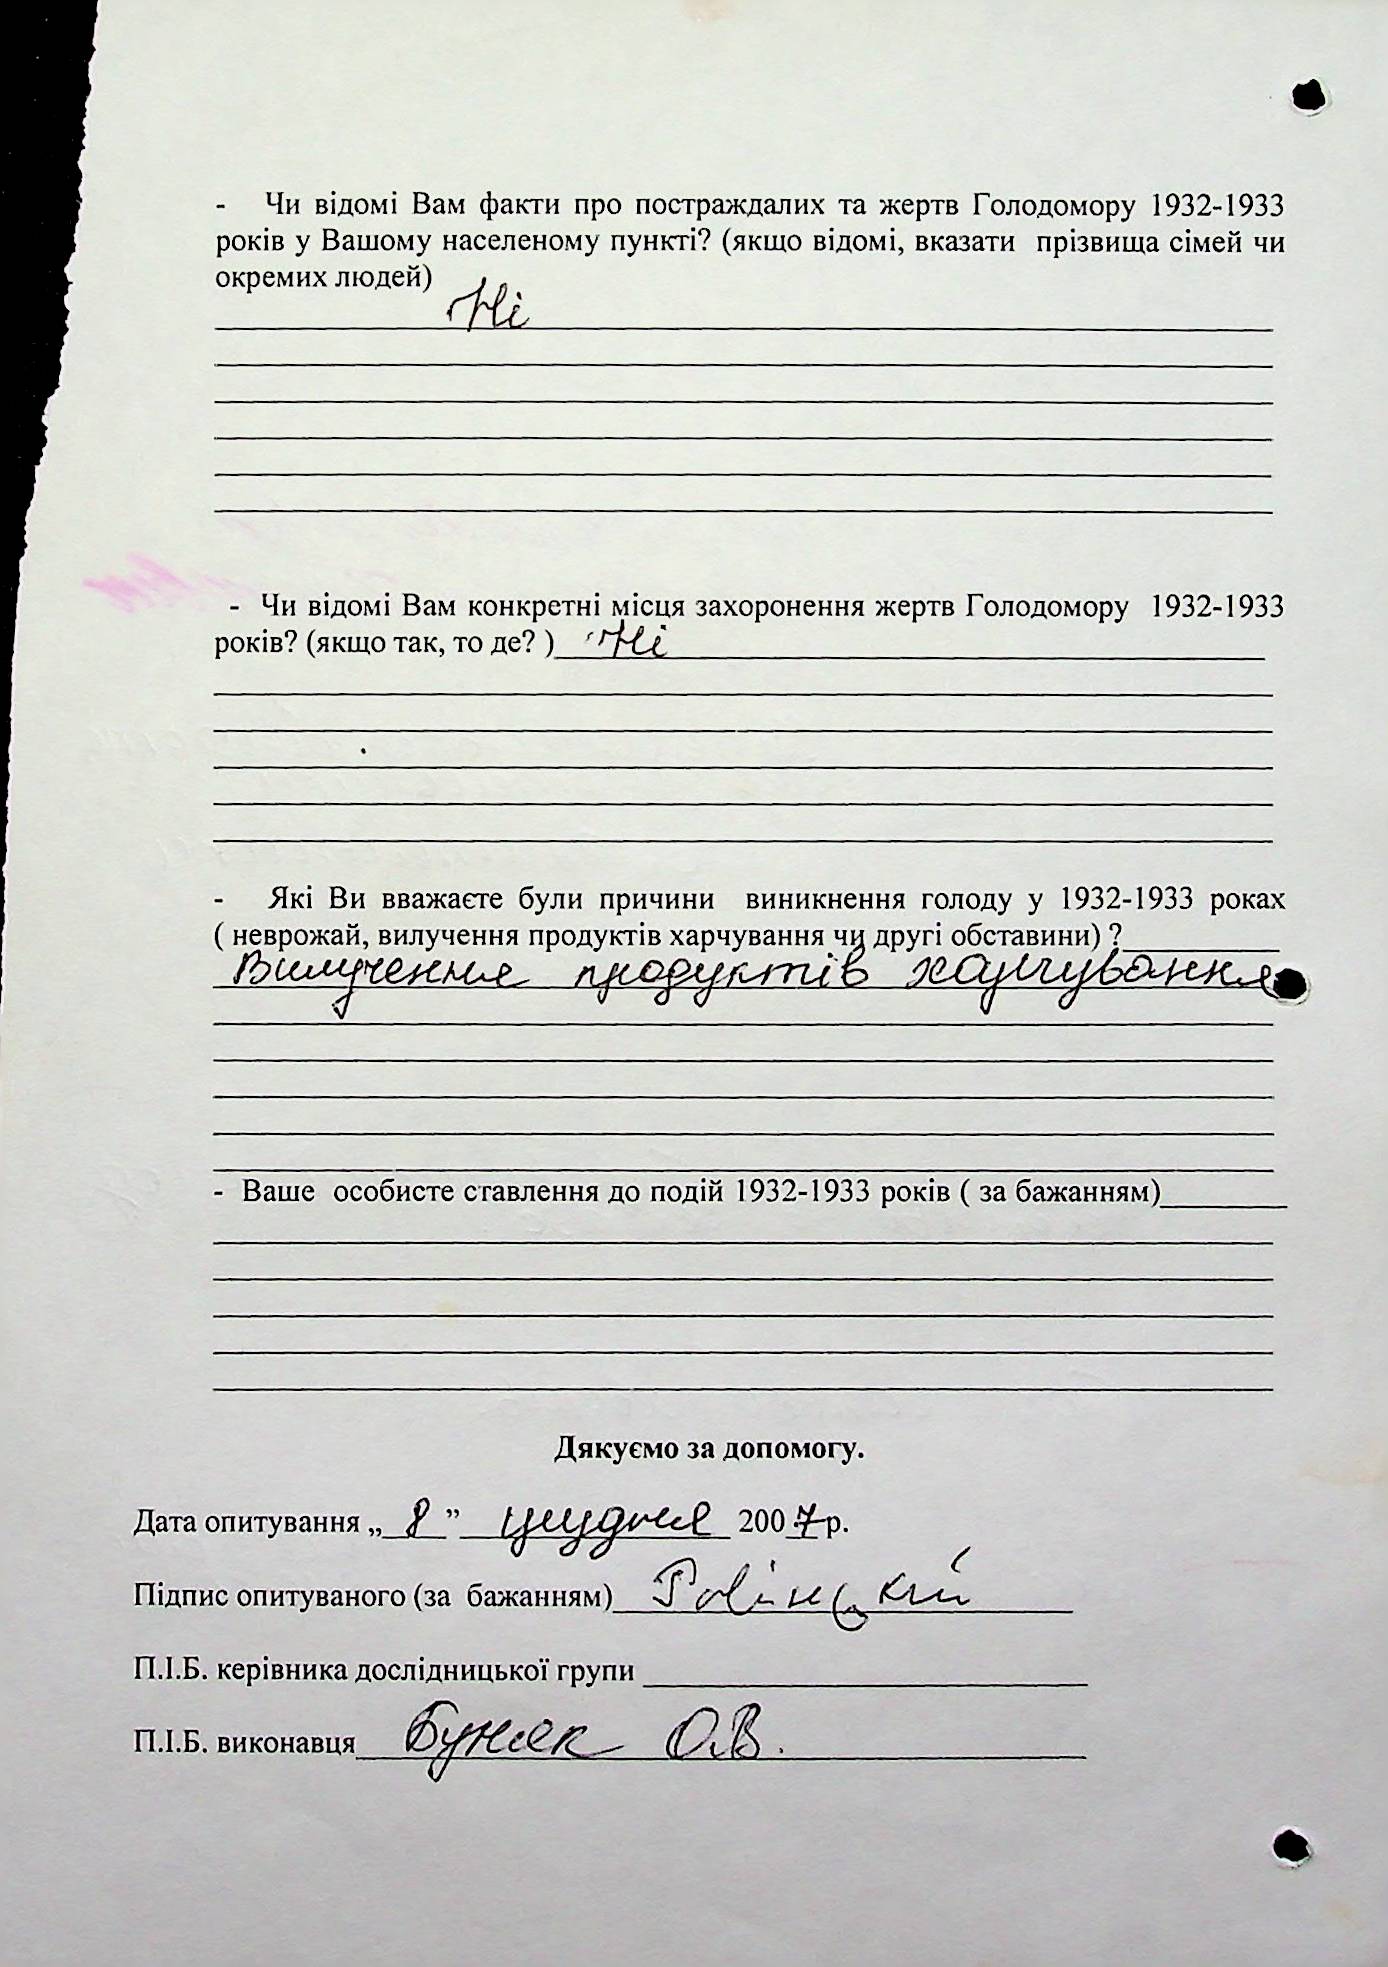 - Чи відомі Вам факти про постраждалих та жертв Голодомору 1932-1933
років у Вашому населеному пункті? (якщо відомі, вказати прізвища сімей чи
окремих людей)
Ні
- Чи відомі Вам конкретні місця захоронення жертв Голодомору 1932-1933
років? (якщо так, то де? ) Ні
- Які Ви вважаєте були причини виникнення голоду у 1932-1933 роках
( неврожай, вилучення продуктів харчування чи другі обставини) ?
Вилучення продуктів харчування
- Ваше особисте ставлення до подій 1932-1933 років ( за бажанням)
Дякуємо за допомогу.
Дата опитування „ 8 ” грудня 2007р.
Підпис опитуваного (за бажанням)
П.І.Б. керівника дослідницької групи
П.І.Б. виконавця Буняк О.В.